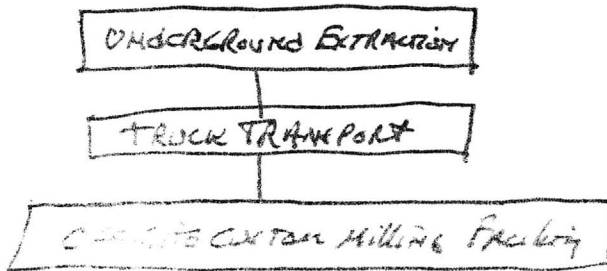 UNDERGROUND EXTRACTION
TRUCK TRANSPORT
OFFSITE CUSTOM Milling Facility